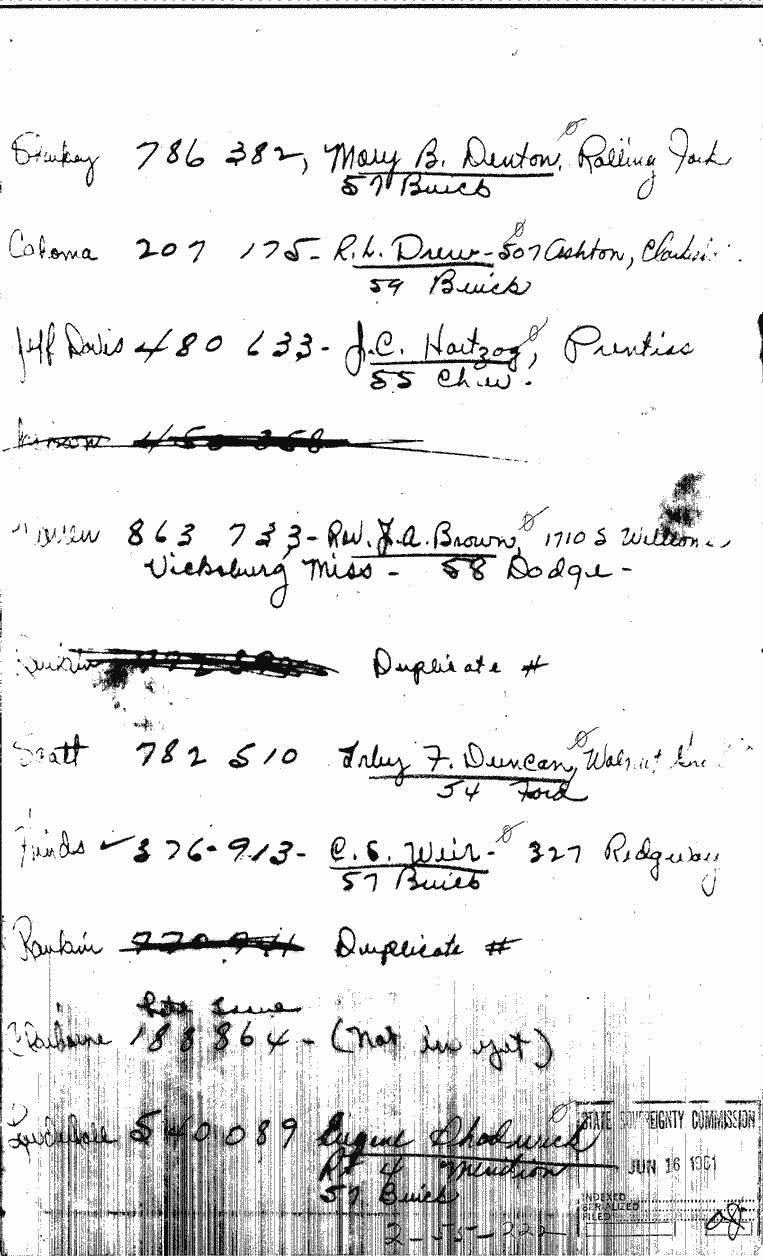 Sharkey 786 382, Mary B. Denton, Rolling Fork
57 Buick
Cahoma 207 175- R.L. Drew - 507 Ashton,
59 Buick
Jeff Davis 480 633- J.C. Hartzog, Prentiss
55 Chev.
Warren 863 733- Rev. J.A. Brown, 1710 S
Vicksburg Miss - 58 Dodge -
Duplicate #
Scott 782 510 Irby F. Duncan, Walnut
54 Ford
Hinds ✓ 376-913- C.S. Weir- 327 Ridgeway
57 Buick
Rankin Duplicate #
Late Issue
Claiborne 188 864 - (Not in yet)
Lauderdale 540 089 Eugene Chadwick
Rt 4 Meridian
57 Buick
STATE SOVEREIGNTY COMMISSION
JUN 16 1961
INDEXED
SERIALIZED
FILED
2-55-222